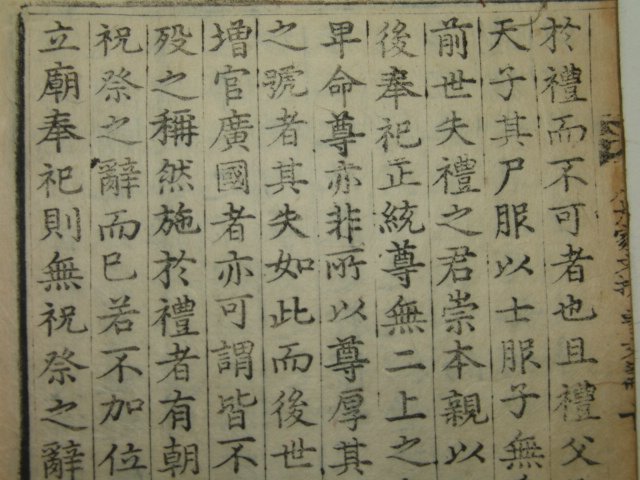 於禮而不可者也且禮父
天子其尸服以士服子無
前世失禮之君崇本親以
後奉祀正統尊無二上之
卑命尊亦非所以尊厚其
之號者其失如此而後世
増官廣國者亦可謂皆不
歿之稱然施於禮者有朝
祝祭之辭而已若不加位
立廟奉祀則無祝祭之辭